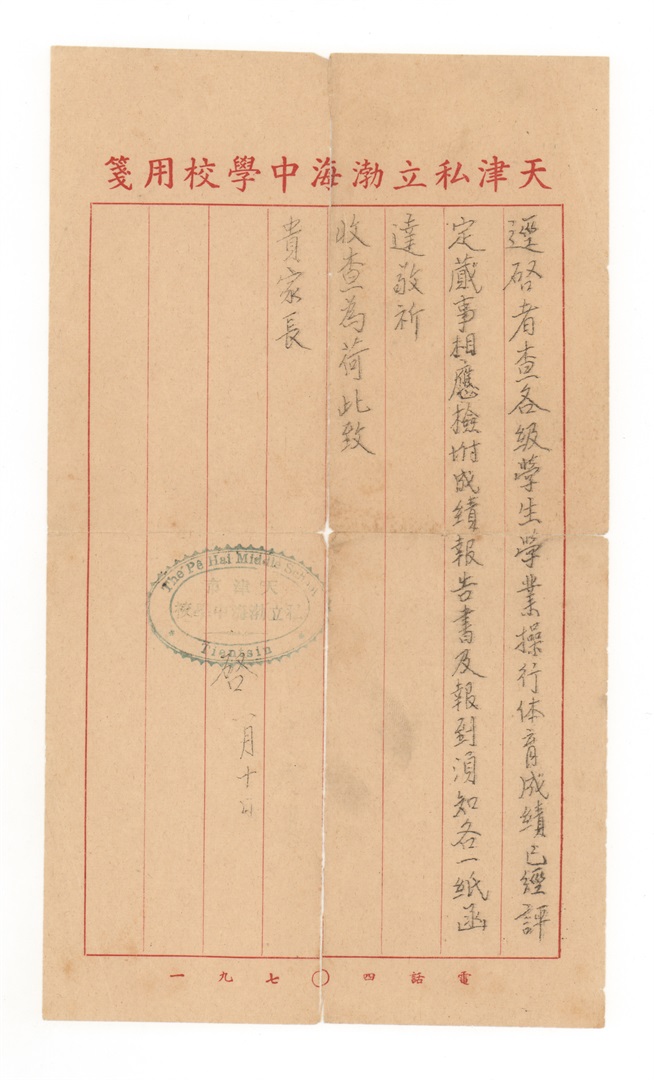 天津私立渤海中學校用箋
逕啓者查各級學生學業操行体育成績已經評
定蕆事相應撿附成績報告書及報到須知各一紙函
達敬祈
收查為荷此致
貴家長
The Pé Hai Middle School
天津市
私立渤海中學校
Tientsin
啓 八月十日
電話四〇七九一